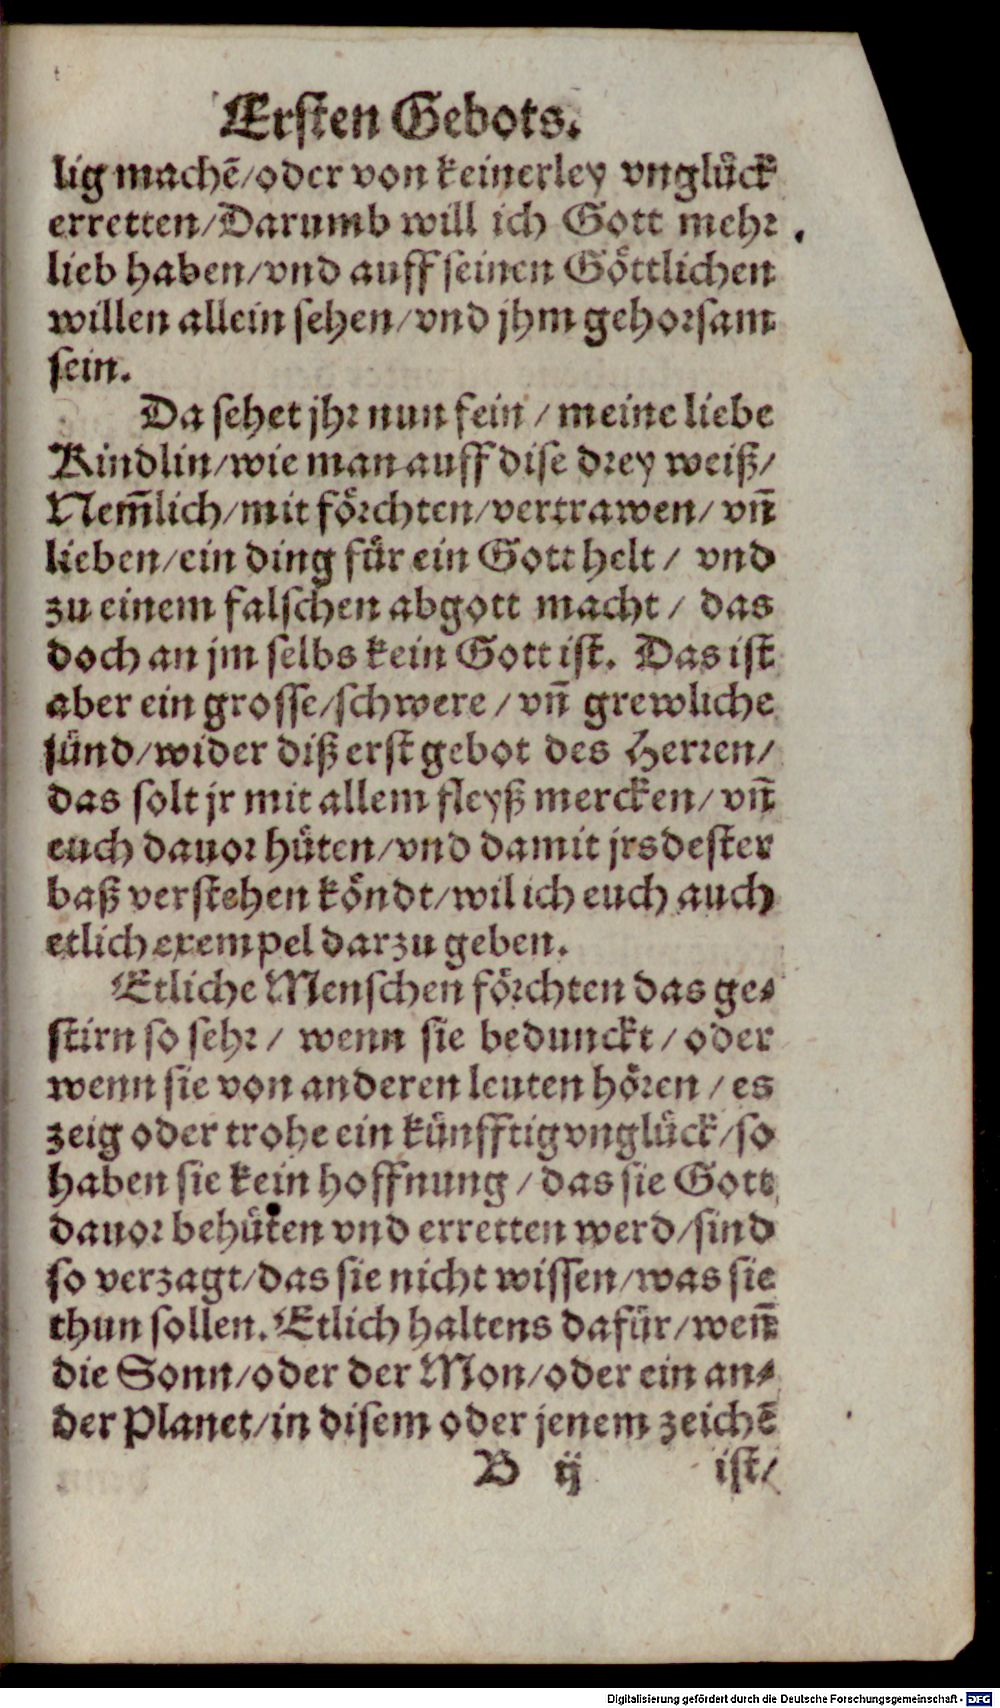 Ersten Gebots.
lig machẽ/oder von keinerley vnglück
erretten/Darumb will ich Gott mehr
lieb haben/vnd auff seinen Göttlichen
willen allein sehen/vnd jhm gehorsam
sein.
Da sehet jhr nun fein / meine liebe
Kindlin/wie man auff dise drey weiß/
Nem̃lich/mit förchten/vertrawen/ vñ
lieben/ein ding für ein Gott helt / vnd
zu einem falschen abgott macht / das
doch an jm selbs kein Gott ist. Das ist
aber ein grosse/schwere / vñ grewliche
sünd/wider diß erst gebot des Herren/
das solt jr mit allem fleyß mercken/ vñ
euch dauor hüten/vnd damit jrs dester
baß verstehen köndt/wil ich euch auch
etlich exempel darzu geben.
Etliche Menschen förchten das ge-
stirn so sehr / wenn sie bedunckt / oder
wenn sie von anderen leuten hören / es
zeig oder trohe ein künfftig vnglück/so
haben sie kein hoffnung / das sie Gott
dauor behüten vnd erretten werd/sind
so verzagt/das sie nicht wissen/was sie
thun sollen. Etlich haltens dafür/weñ
die Sonn/oder der Mon/oder ein an-
der Planet/in disem oder jenem zeichẽ
B ij ist/
Digitalisierung gefördert durch die Deutsche Forschungsgemeinschaft - DFG